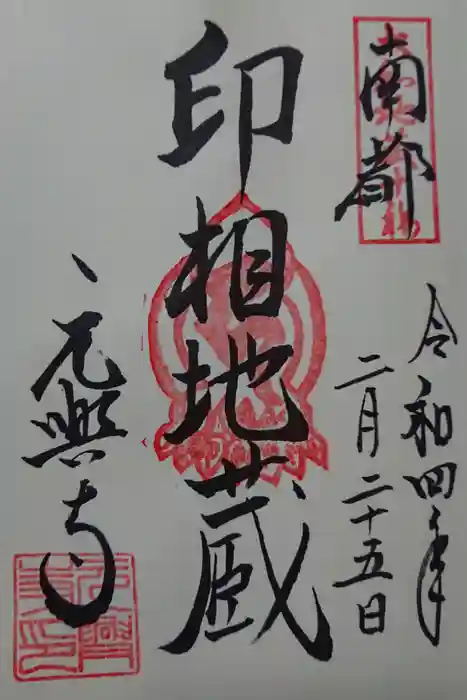 南都
令和四年
二月二十五日
印相地蔵
元興寺